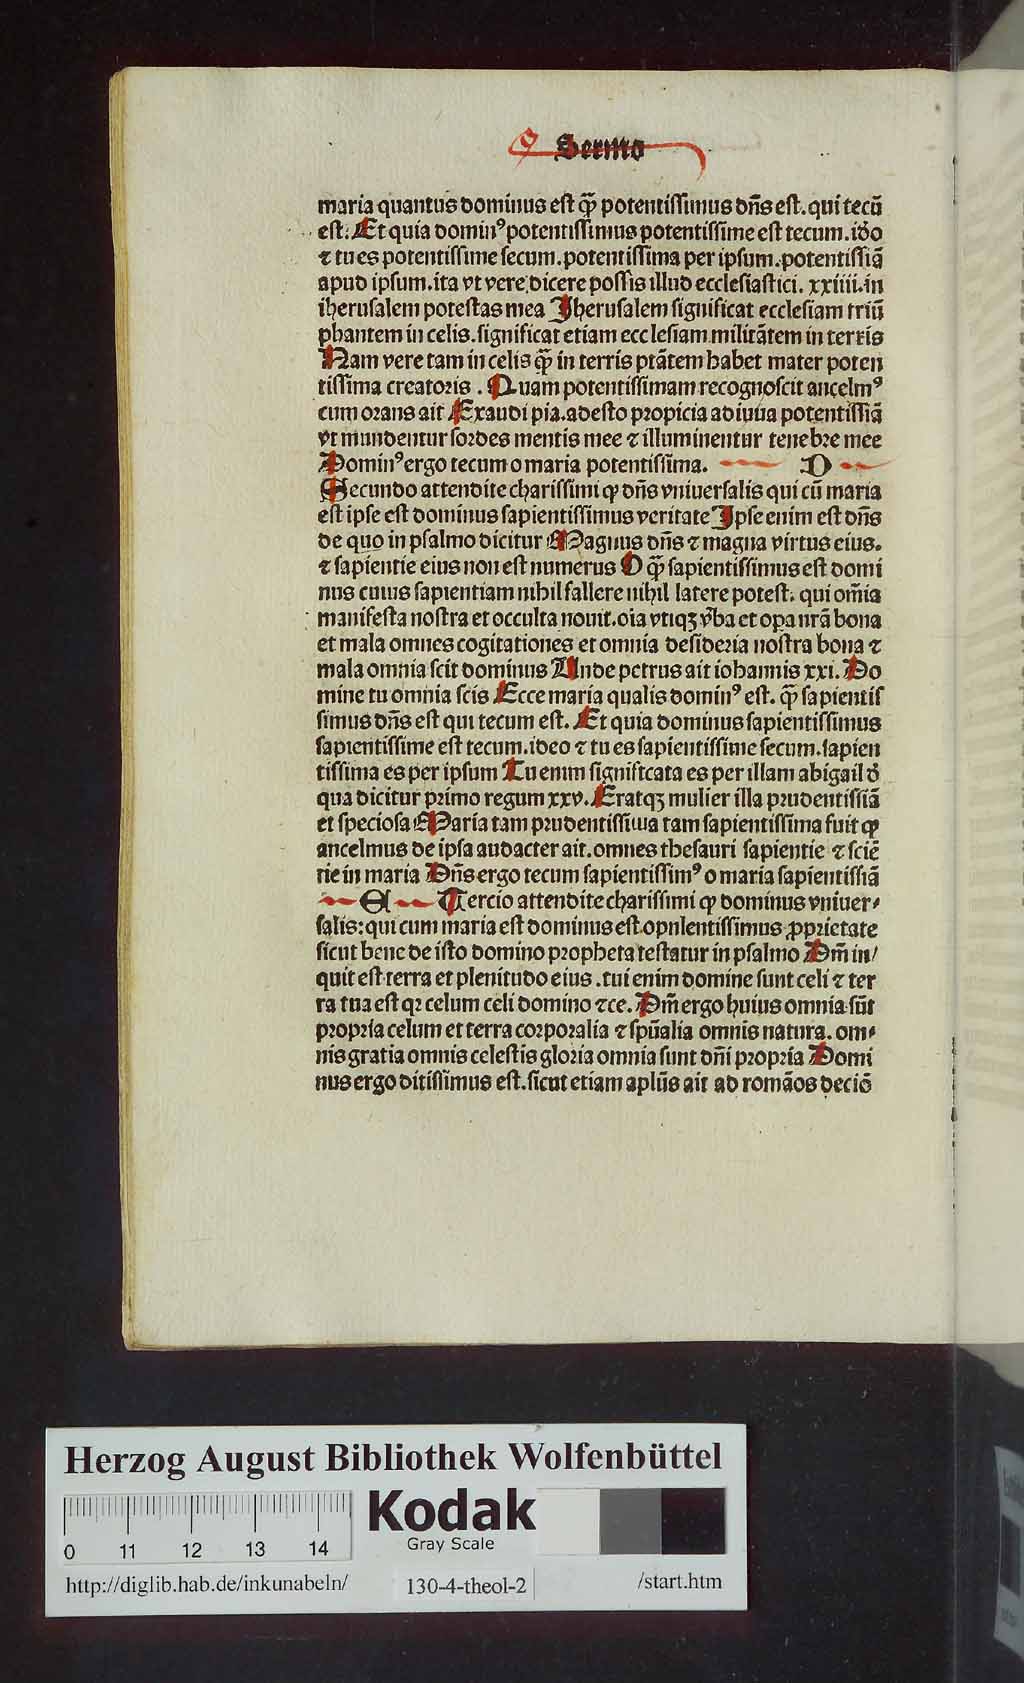 Sermo
maria quantus dominus est qꝫ̄ potentissimus dn̄s est. qui tecū
est. Et quia dominꝰ potentissimus potentissime est tecum. iđo
⁊ tu es potentissime secum. potentissima per ipsum. potentissiā
apud ipsum. ita vt vere dicere possis illud ecclesiastici. xxiiii. in
iherusalem potestas mea Jherusalem significat ecclesiam triū
phantem in celis. significat etiam ecclesiam militātem in terris
Nam vere tam in celis qꝫ̄ in terris ptātem habet mater poten
tissima creatoris . Quam potentissimam recognoscit ancelmꝰ
cum orans ait Exaudi pia. adesto propicia ad iuua potentissiā
vt mundentur sordes mentis mee ⁊ illuminentur tenebre mee
Dominꝰ ergo tecum o maria potentissima. D
Secundo attendite charissimi ꝙ dn̄s vniuersalis qui cū maria
est ipse est dominus sapientissimus veritate Jpse enim est dn̄s
de quo in psalmo dicitur Magnus dn̄s ⁊ magna virtus eius.
⁊ sapientie eius non est numerus O qꝫ̄ sapientissimus est domi
nus cuius sapientiam nihil fallere nihil latere potest. qui om̄ia
manifesta nostra et occulta nouit. oīa vtiqꝫ v̄ba et opa nrā bona
et mala omnes cogitationes et omnia desideria nostra bona ⁊
mala omnia scit dominus Unde petrus ait iohannis xxi. Do
mine tu omnia scis Ecce maria qualis dominꝰ est. qꝫ̄ sapientis
simus dn̄s est qui tecum est. Et quia dominus sapientissimus
sapientissime est tecum. ideo ⁊ tu es sapientissime secum. sapien
tissima es per ipsum Tu enim significata es per illam abigail đ
qua dicitur primo regum xxv. Eratqꝫ mulier illa prudentissiā
et speciosa Maria tam prudentissima tam sapientissima fuit ꝙ
ancelmus de ipsa audacter ait. omnes thesauri sapientie ⁊ sciē
tie in maria Dn̄s ergo tecum sapientissimꝰ o maria sapientissiā
E Tercio attendite charissimi ꝙ dominus vniuer⸗
salis: qui cum maria est dominus est opnlentissimus ꝓprietate
sicut bene de isto domino propheta testatur in psalmo Dm̄ in/
quit est terra et plenitudo eius . tui enim domine sunt celi ⁊ ter
ra tua est qꝛ celum celi domino ⁊ce. Dm̄ ergo huius omnia sūt
propria celum et terra corporalia ⁊ spūalia omnis natura. om⸗
nis gratia omnis celestis gloria omnia sunt dn̄i propria Domi
nus ergo ditissimus est. sicut etiam aplūs ait ad romāos deciō
Herzog August Bibliothek Wolfenbüttel
0 11 12 13 14
Kodak
Gray Scale
http://diglib.hab.de/inkunabeln/ 130-4-theol-2 /start.htm